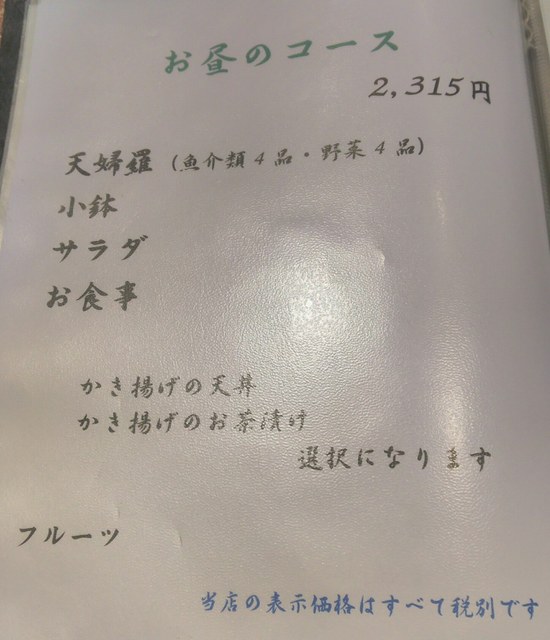 お昼のコース
2,315円
天婦羅 (魚介類4品・野菜4品)
小鉢
サラダ
お食事
かき揚げの天丼
かき揚げのお茶漬け
選択になります
フルーツ
当店の表示価格はすべて税別です